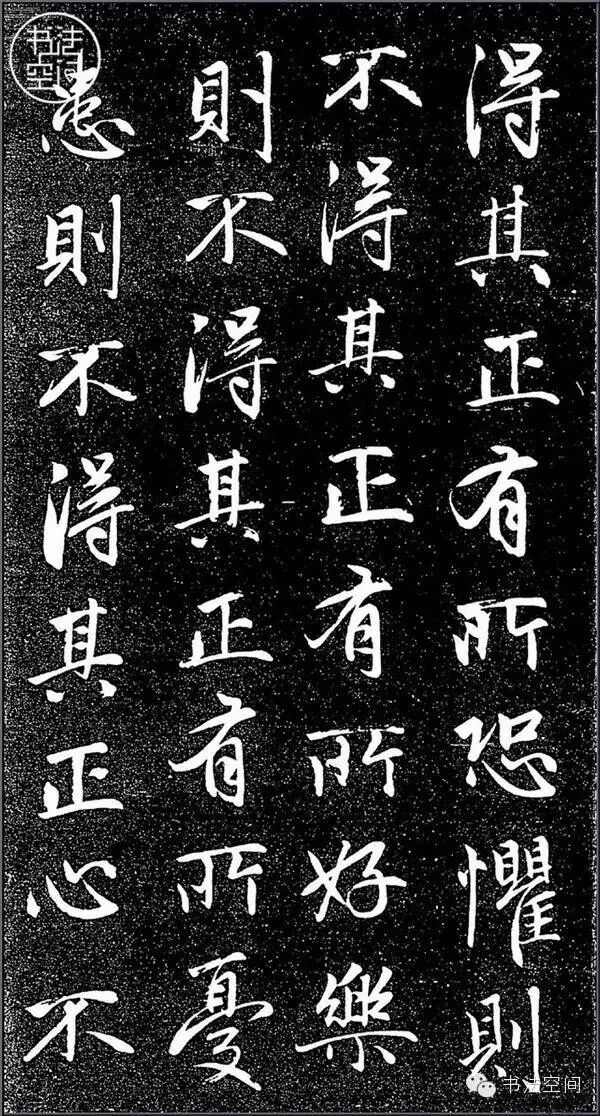 得其正有所恐懼則
不得其正有所好樂
則不得其正有所憂
患則不得其正心不
书法
空间
书法空间